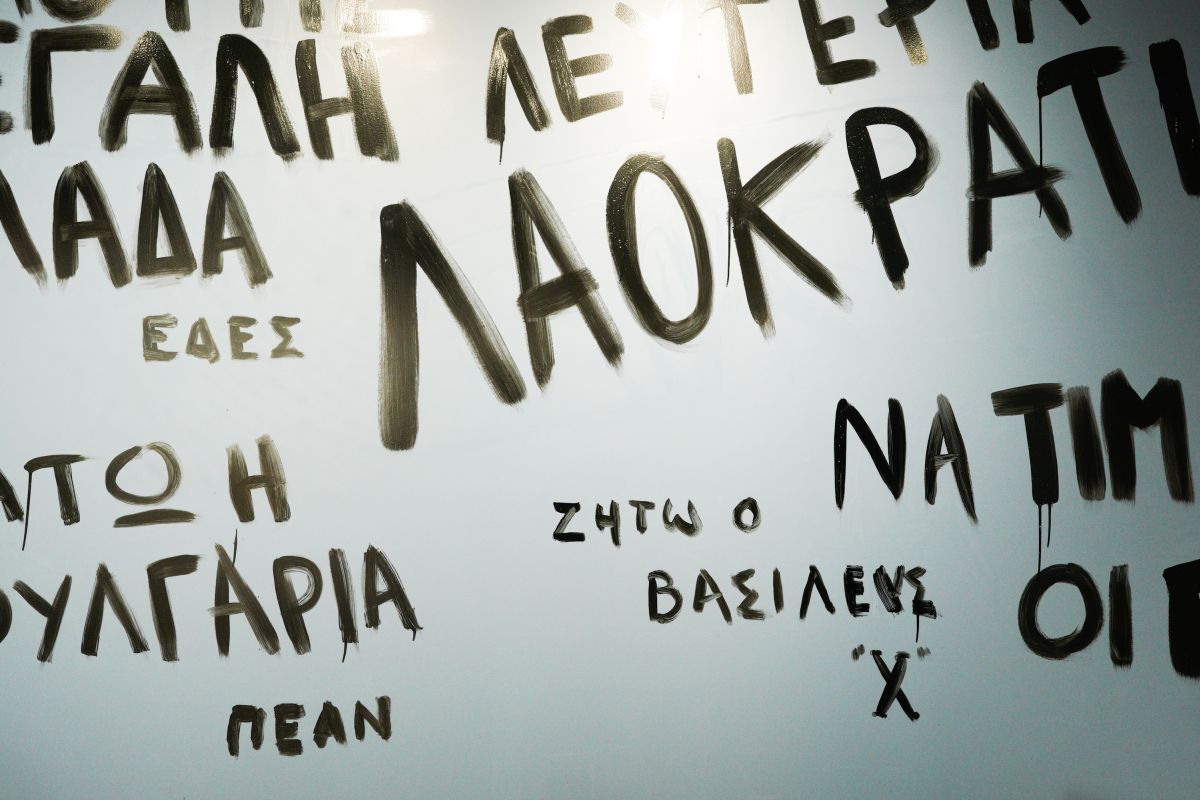 ΕΓΑΛΗ
ΛΑΔΑ
ΕΔΕΣ
ΛΕΥΤΕΡΙΑ
ΛΑΟΚΡΑΤΙ
ΑΤΩ Η
ΟΥΛΓΑΡΙΑ
ΠΕΑΝ
ΖΗΤΩ Ο
ΒΑΣΙΛΕΥΣ
"Χ"
ΝΑ ΤΙΜ
ΟΙ